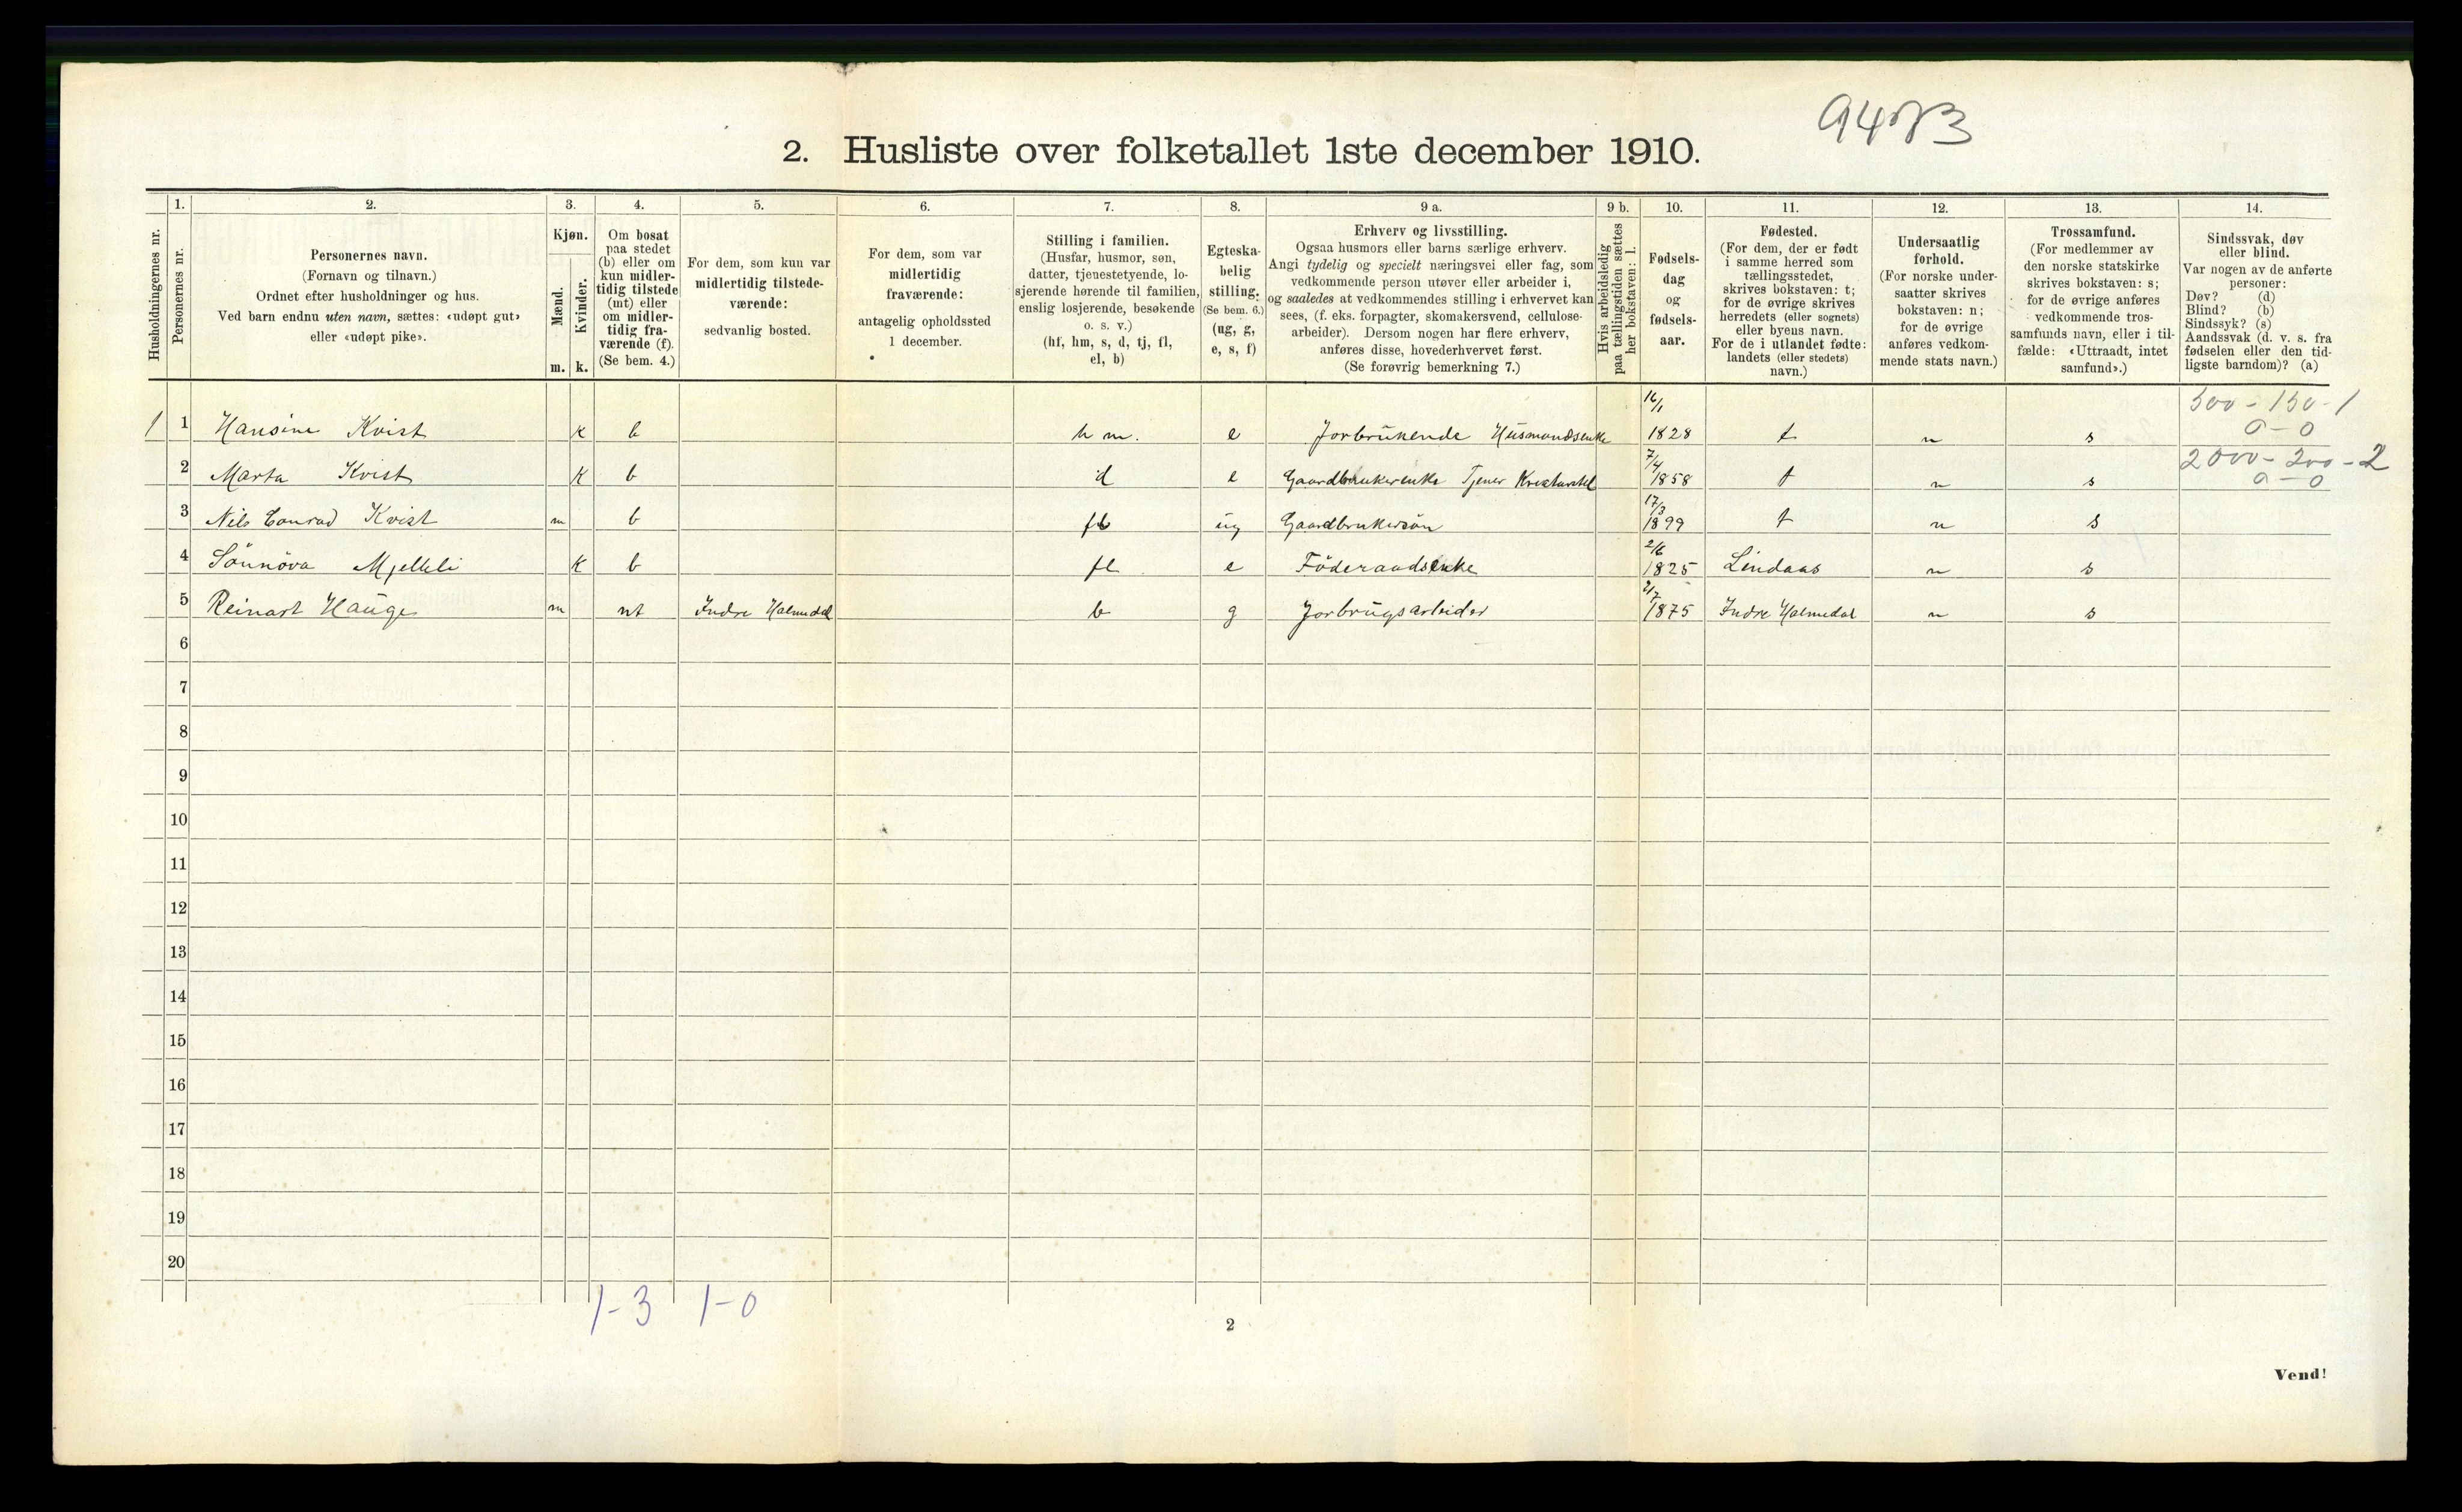 9473
2. Husliste over folketallet 1ste december 1910.
1. 2. 3. 4. 5. 6. 7. 8. 9 a. 9 b. 10. 11. 12. 13. 14.
Husholdningernes nr.
Personernes nr.
Personernes navn.
(Fornavn og tilnavn.)
Ordnet efter husholdninger og hus.
Ved barn endnu uten navn, sættes: «udøpt gut»
eller «udøpt pike».
Kjøn.
Mænd.
Kvinder.
m. k.
Om bosat
paa stedet
(b) eller om
kun midler-
tidig tilstede
(mt) eller
om midler-
tidig fra-
værende (f).
(Se bem. 4.)
For dem, som kun var
midlertidig tilstede-
værende:
sedvanlig bosted.
For dem, som var
midlertidig
fraværende:
antagelig opholdssted
1 december.
Stilling i familien.
(Husfar, husmor, søn,
datter, tjenestetyende, lo-
sjerende hørende til familien,
enslig losjerende, besøkende
o. s. v.)
(hf, hm, s, d, tj, fl,
el, b)
Egteska-
belig
stilling.
(Se bem. 6.)
(ug, g,
e, s, f)
Erhverv og livsstilling.
Ogsaa husmors eller barns særlige erhverv.
Angi tydelig og specielt næringsvei eller fag, som
vedkommende person utøver eller arbeider i,
og saaledes at vedkommendes stilling i erhvervet kan
sees, (f. eks. forpagter, skomakersvend, cellulose-
arbeider). Dersom nogen har flere erhverv,
anføres disse, hovederhvervet først.
(Se forøvrig bemerkning 7.)
Hvis arbeidsledig
paa tællingstiden sættes
her bokstaven: l.
Fødsels-
dag
og
fødsels-
aar.
Fødested.
(For dem, der er født
i samme herred som
tællingsstedet,
skrives bokstaven: t;
for de øvrige skrives
herredets (eller sognets)
eller byens navn.
For de i utlandet fødte:
landets (eller stedets)
navn.)
Undersaatlig
forhold.
(For norske under-
saatter skrives
bokstaven: n;
for de øvrige
anføres vedkom-
mende stats navn.)
Trossamfund.
(For medlemmer av
den norske statskirke
skrives bokstaven: s;
for de øvrige anføres
vedkommende tros-
samfunds navn, eller i til-
fælde: «Uttraadt, intet
samfund».)
Sindssvak, døv
eller blind.
Var nogen av de anførte
personer:
Døv? (d)
Blind? (b)
Sindssyk? (s)
Aandssvak (d. v. s. fra
fødselen eller den tid-
ligste barndom)? (a)
1 1 Hansine Kvist k b hm. e Jorbrukende Husmandsenke 16/1 1828 t n s 500 - 150 - 1 0 - 0
2 Marta Kvist k b d e Gaardbrukerenke Tjener 7/4 1858 t n s 2000 - 200 - 2 0 - 0
3 Nils Conrad Kvist m b ug Gaardbrukersön 17/3 1899 t n s
4 Sönnöva Mjelleli k b fl e Föderaadsenke 2/6 1825 Lindaas n s
5 Reinart Hauge m mt Indre Holmedal b g Jorbrugsarbeider 2/7 1875 Indre Holmedal n s
6
7
8
9
10
11
12
13
14
15
16
17
18
19
20
1-3 1-0
2
Vend!